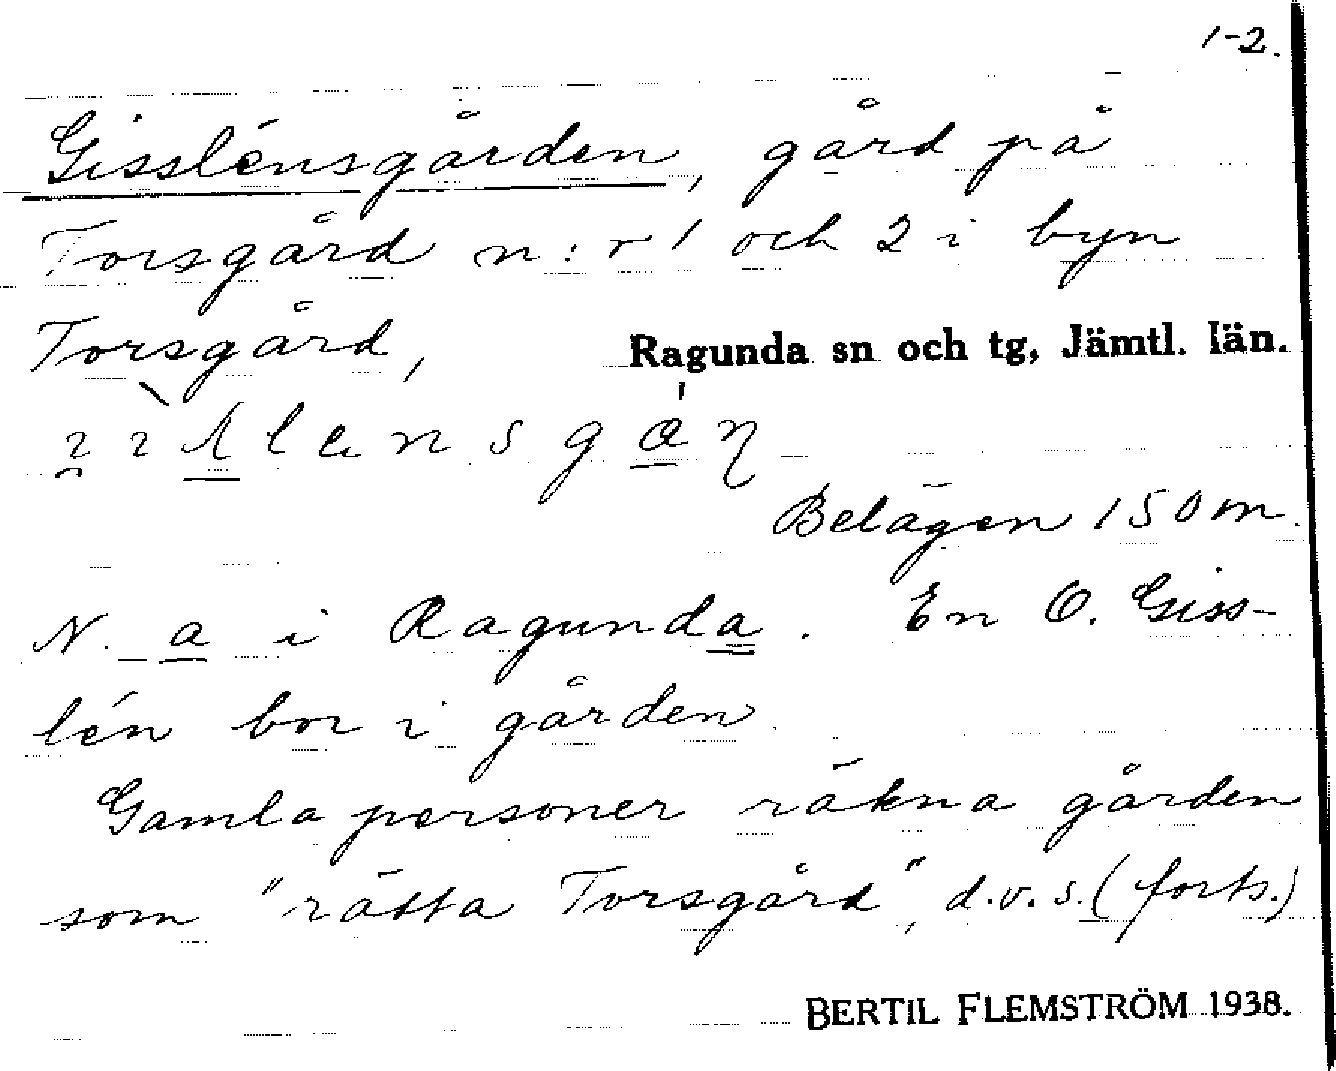 1-2.
Gisslénsgården, gård på
Torsgård n:r 1 och 2 i byn
Torsgård,
Ragunda sn och tg, Jämtl. län.
Belägen 150 m.
N. a i Ragunda. En O. Giss-
lén bor i gården
Gamla personer räkna gården
som "rätta Torsgård", d.v.s. (forts.)
BERTIL FLEMSTRÖM 1938.